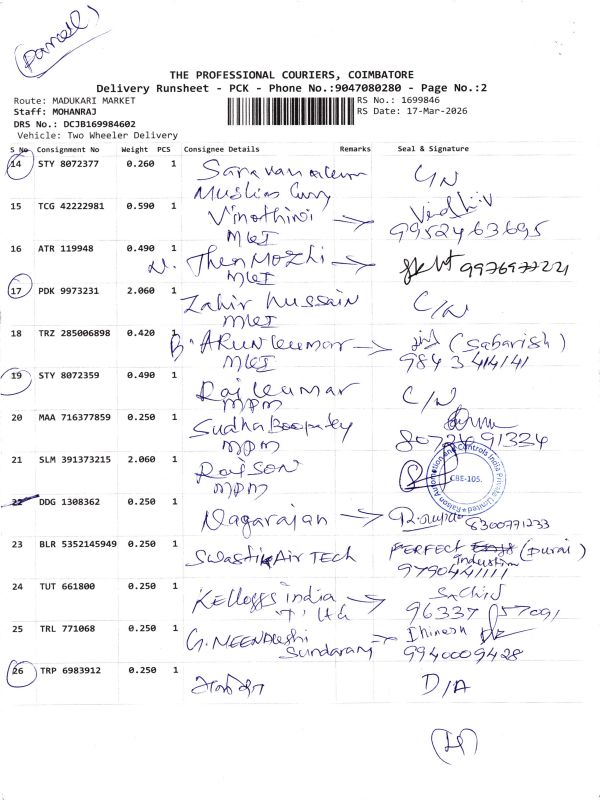 (Parcel)
THE PROFESSIONAL COURIERS, COIMBATORE
Delivery Runsheet - PCK - Phone No.:9047080280 - Page No.:2
Route: MADUKARI MARKET
RS No.: 1699846
Staff: MOHANRAJ
RS Date: 17-Mar-2026
DRS No.: DCJB169984602
Vehicle: Two Wheeler Delivery
S No Consignment No Weight PCS Consignee Details Remarks Seal & Signature
14 STY 8072377 0.260 1 C/N
15 TCG 42222981 0.590 1 Vinothini
MKI 9952463695
16 ATR 119948 0.490 1 N. Then Mozhi 9976977221
MKI
17 PDK 9973231 2.060 1 Zahir Hussain C/N
MKI
18 TRZ 285006898 0.420 1 B. ARUN kumar (Sabarish)
MKI 9843414141
19 STY 8072359 0.490 1 Raj kumar C/N
MPM
20 MAA 716377859 0.250 1 Sudha Boopathy
MPM
21 SLM 391373215 2.060 1 Ratson
MPM
CBE-105.
22 DDG 1308362 0.250 1 Nagarajan
8300771233
23 BLR 5352145949 0.250 1 Swastik Air Tech PERFECT (Durai)
Industries
9790441111
24 TUT 661800 0.250 1 Kelloggs india Sachin
P. Ltd 96337 57091
25 TRL 771068 0.250 1 G. MEENAkshi Dhinesh
Sundaram 9940009428
26 TRP 6983912 0.250 1 D/A